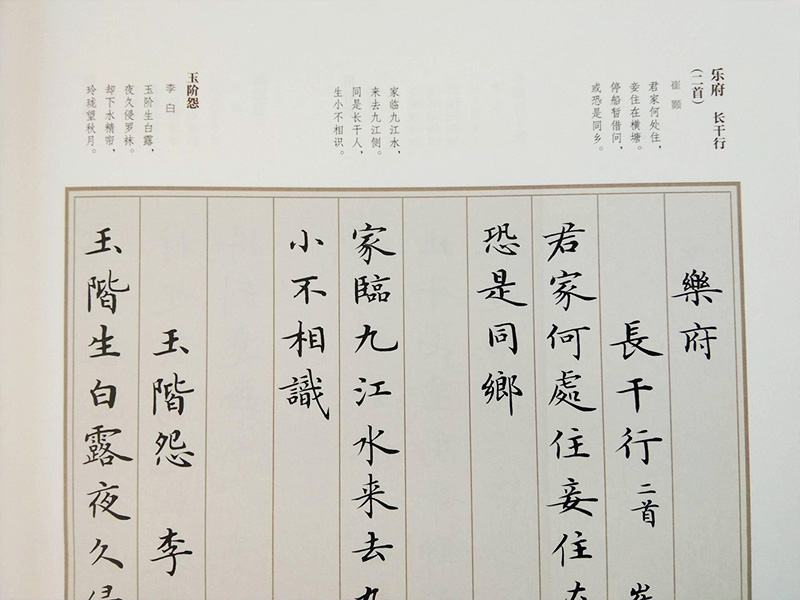 乐府 长干行
（二首）
崔 颢
君家何处住，
妾住在横塘。
停船暂借问，
或恐是同乡。
家临九江水，
来去九江侧。
同是长干人，
生小不相识。
玉阶怨
李 白
玉阶生白露，
夜久侵罗袜。
却下水精帘，
玲珑望秋月。
樂府
長干行 二首
君家何處住妾住
恐是同鄉
家臨九江水来去九
小不相識
玉階怨 李
玉階生白露夜久侵